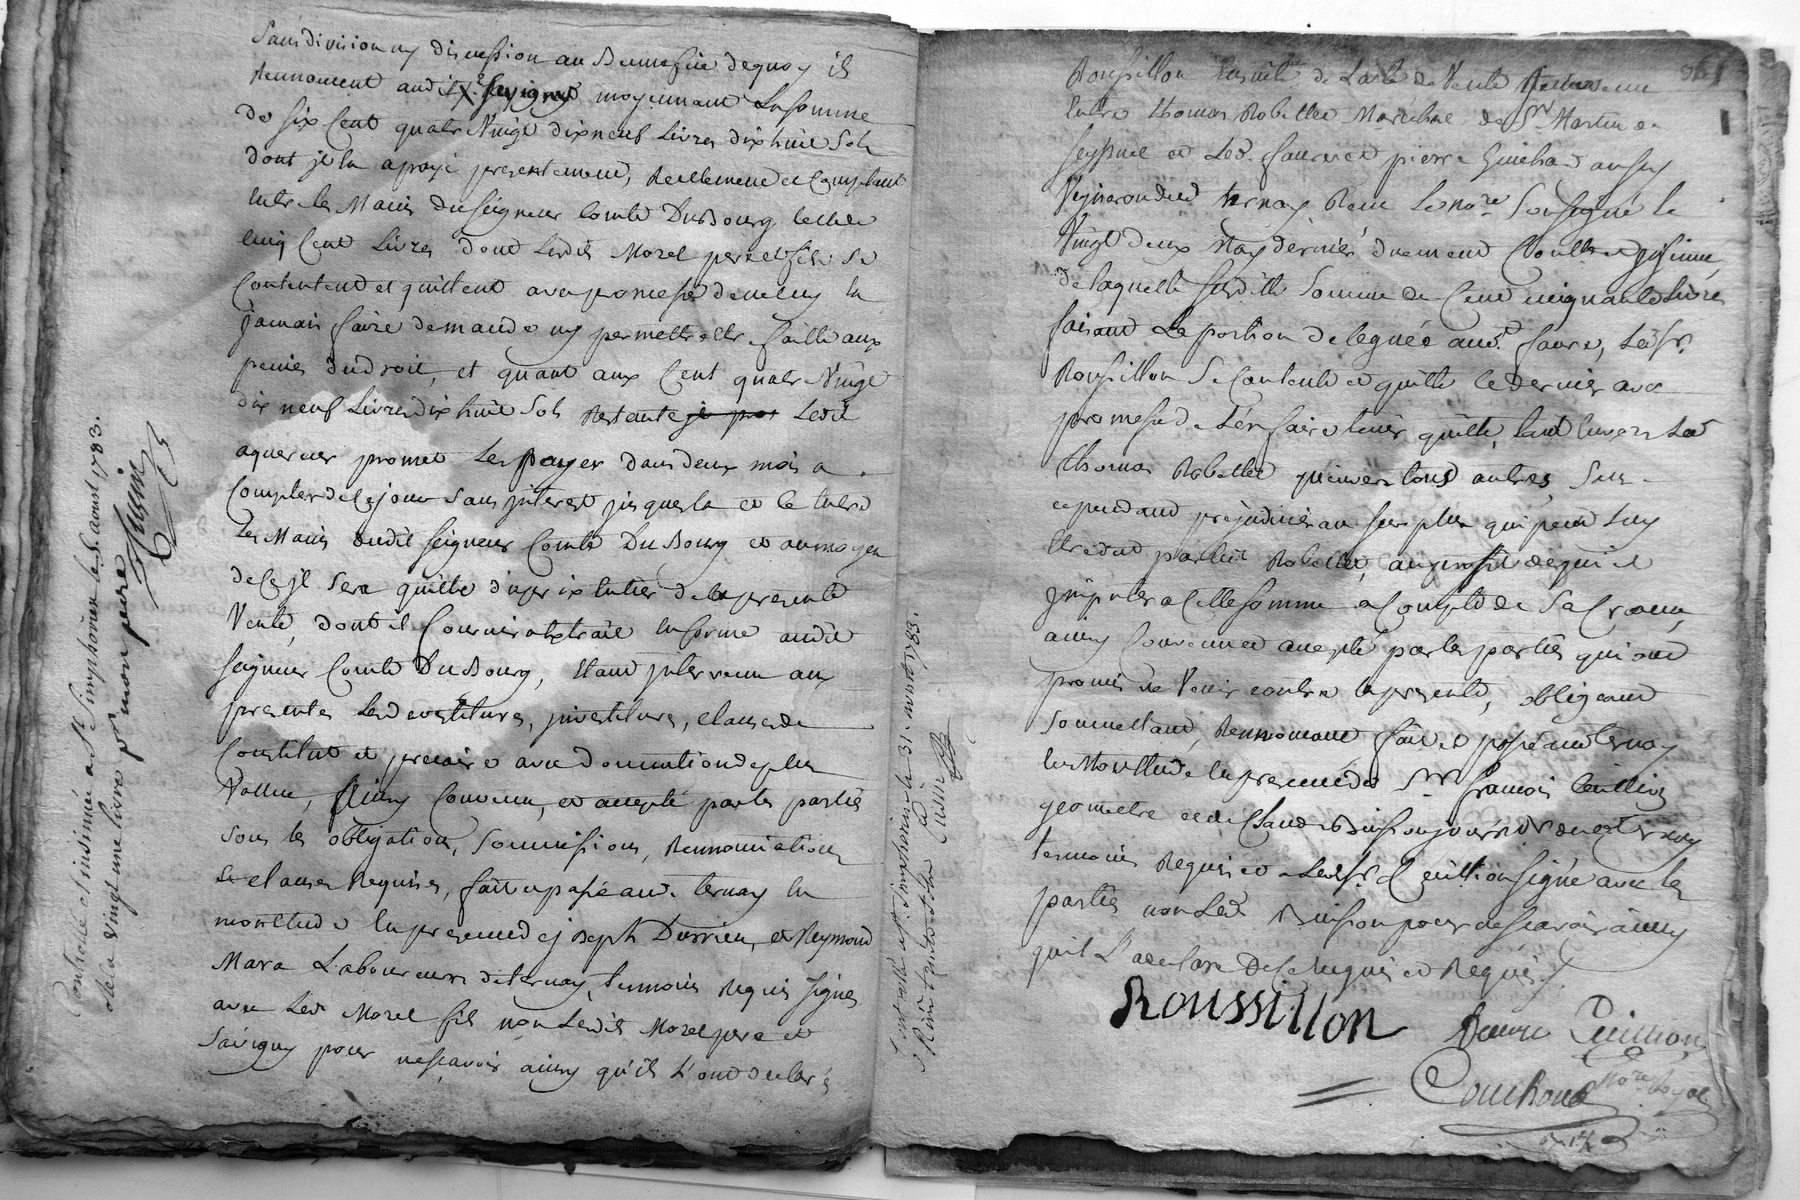 Sans division ny discussion au Benneficie dequoy ils
Rennoncent audit Savigny moyennant la somme
de six Cent quatre Vingt dix neuf Livres dix huit Sols
dont il en a payé presentement, Reellement et Comptant
entre les Mains du seigneur Comte DuBourg celle de
Cinq Cent Livres dont Lesdits Morel pere et fils se
Contentent et quittent avec promesse de ne luy en
jamais faire demande ny permettre etre faitte aux
peines du droit, et quant aux Cent quatre Vingt
dix neuf Livres dix huit Sols Restante Ledit
aquereur promet Les payer dans deux mois a
Compter de Ce jour sans interest jusques la et ce entre
Les Mains dudit seigneur Comte DuBourg et au moyen
de Ce il sera quitte du prix entier de la presente
Vente, dont il fournira extrait en forme audit
seigneur Comte DuBourg, etant intervenu aux
presentes Lesdevestitures, investitures, clauses de
Constitut et precaire avec donnation de plus
Value, Ainsy Convenu, et accepté par les parties
sous les obligations, soumissions, Rennonciations
et clauses Requises, fait et passé aud. ternay en
nostre etude en presence de joseph Durrieu, et Reymond
Mara Laboureurs de ternay, temoins Requis signés
avec Led. Morel fils non Ledit Morel pere et
Savigny pour ne sçavoir ainsy qu'ils L'ont declaré
Controllé et insinué a St Simphorien le 8 aoust 1783.
Reçu vingt une livre pr mon pere
Roussillon Resulte de L'acte de Vente
Entre thomas Robellet Maréchal de St Martin de
seyssuel et Led. faure et pierre Guichard aussy
Vigneron dud ternay Reçu Le nore soussigné le
Vingt deux May dernier duement Controllé et insinué,
de laquelle susditte somme de Cent cinquante Livres
faisant La portion deleguée aud. faure, Led. sr.
Roussillon se Contente et quitte ce dernier avec
promesse de L'en faire tenir quitte tant envers Led
thomas Robellet qu'envers tous autres, sans
cependant prejudicier au surplus qui peut Luy
etre dud par led Robellet, au profit de qui il
imputera Cette somme a Compte de sa Creance,
ainsy Convenu et accepté par les parties qui ont
promis ne Venir contre la presente, obligeant
soumettant, Rennoncant fait et passé aud ternay
en nostre etude en presence de Sr. francois
geometre et de Claude Buisson dud ternay
temoins Requis et Led. sr. signé avec les
parties non Led. Buisson pour ne sçavoir ainsy
qu'il L'a declaré De Ce Enquis et Requis.
Controllé a St Simphorien le 31. aout 1783.
Reçu trente sols
Roussillon
faure
Couchoud
Nore Royal